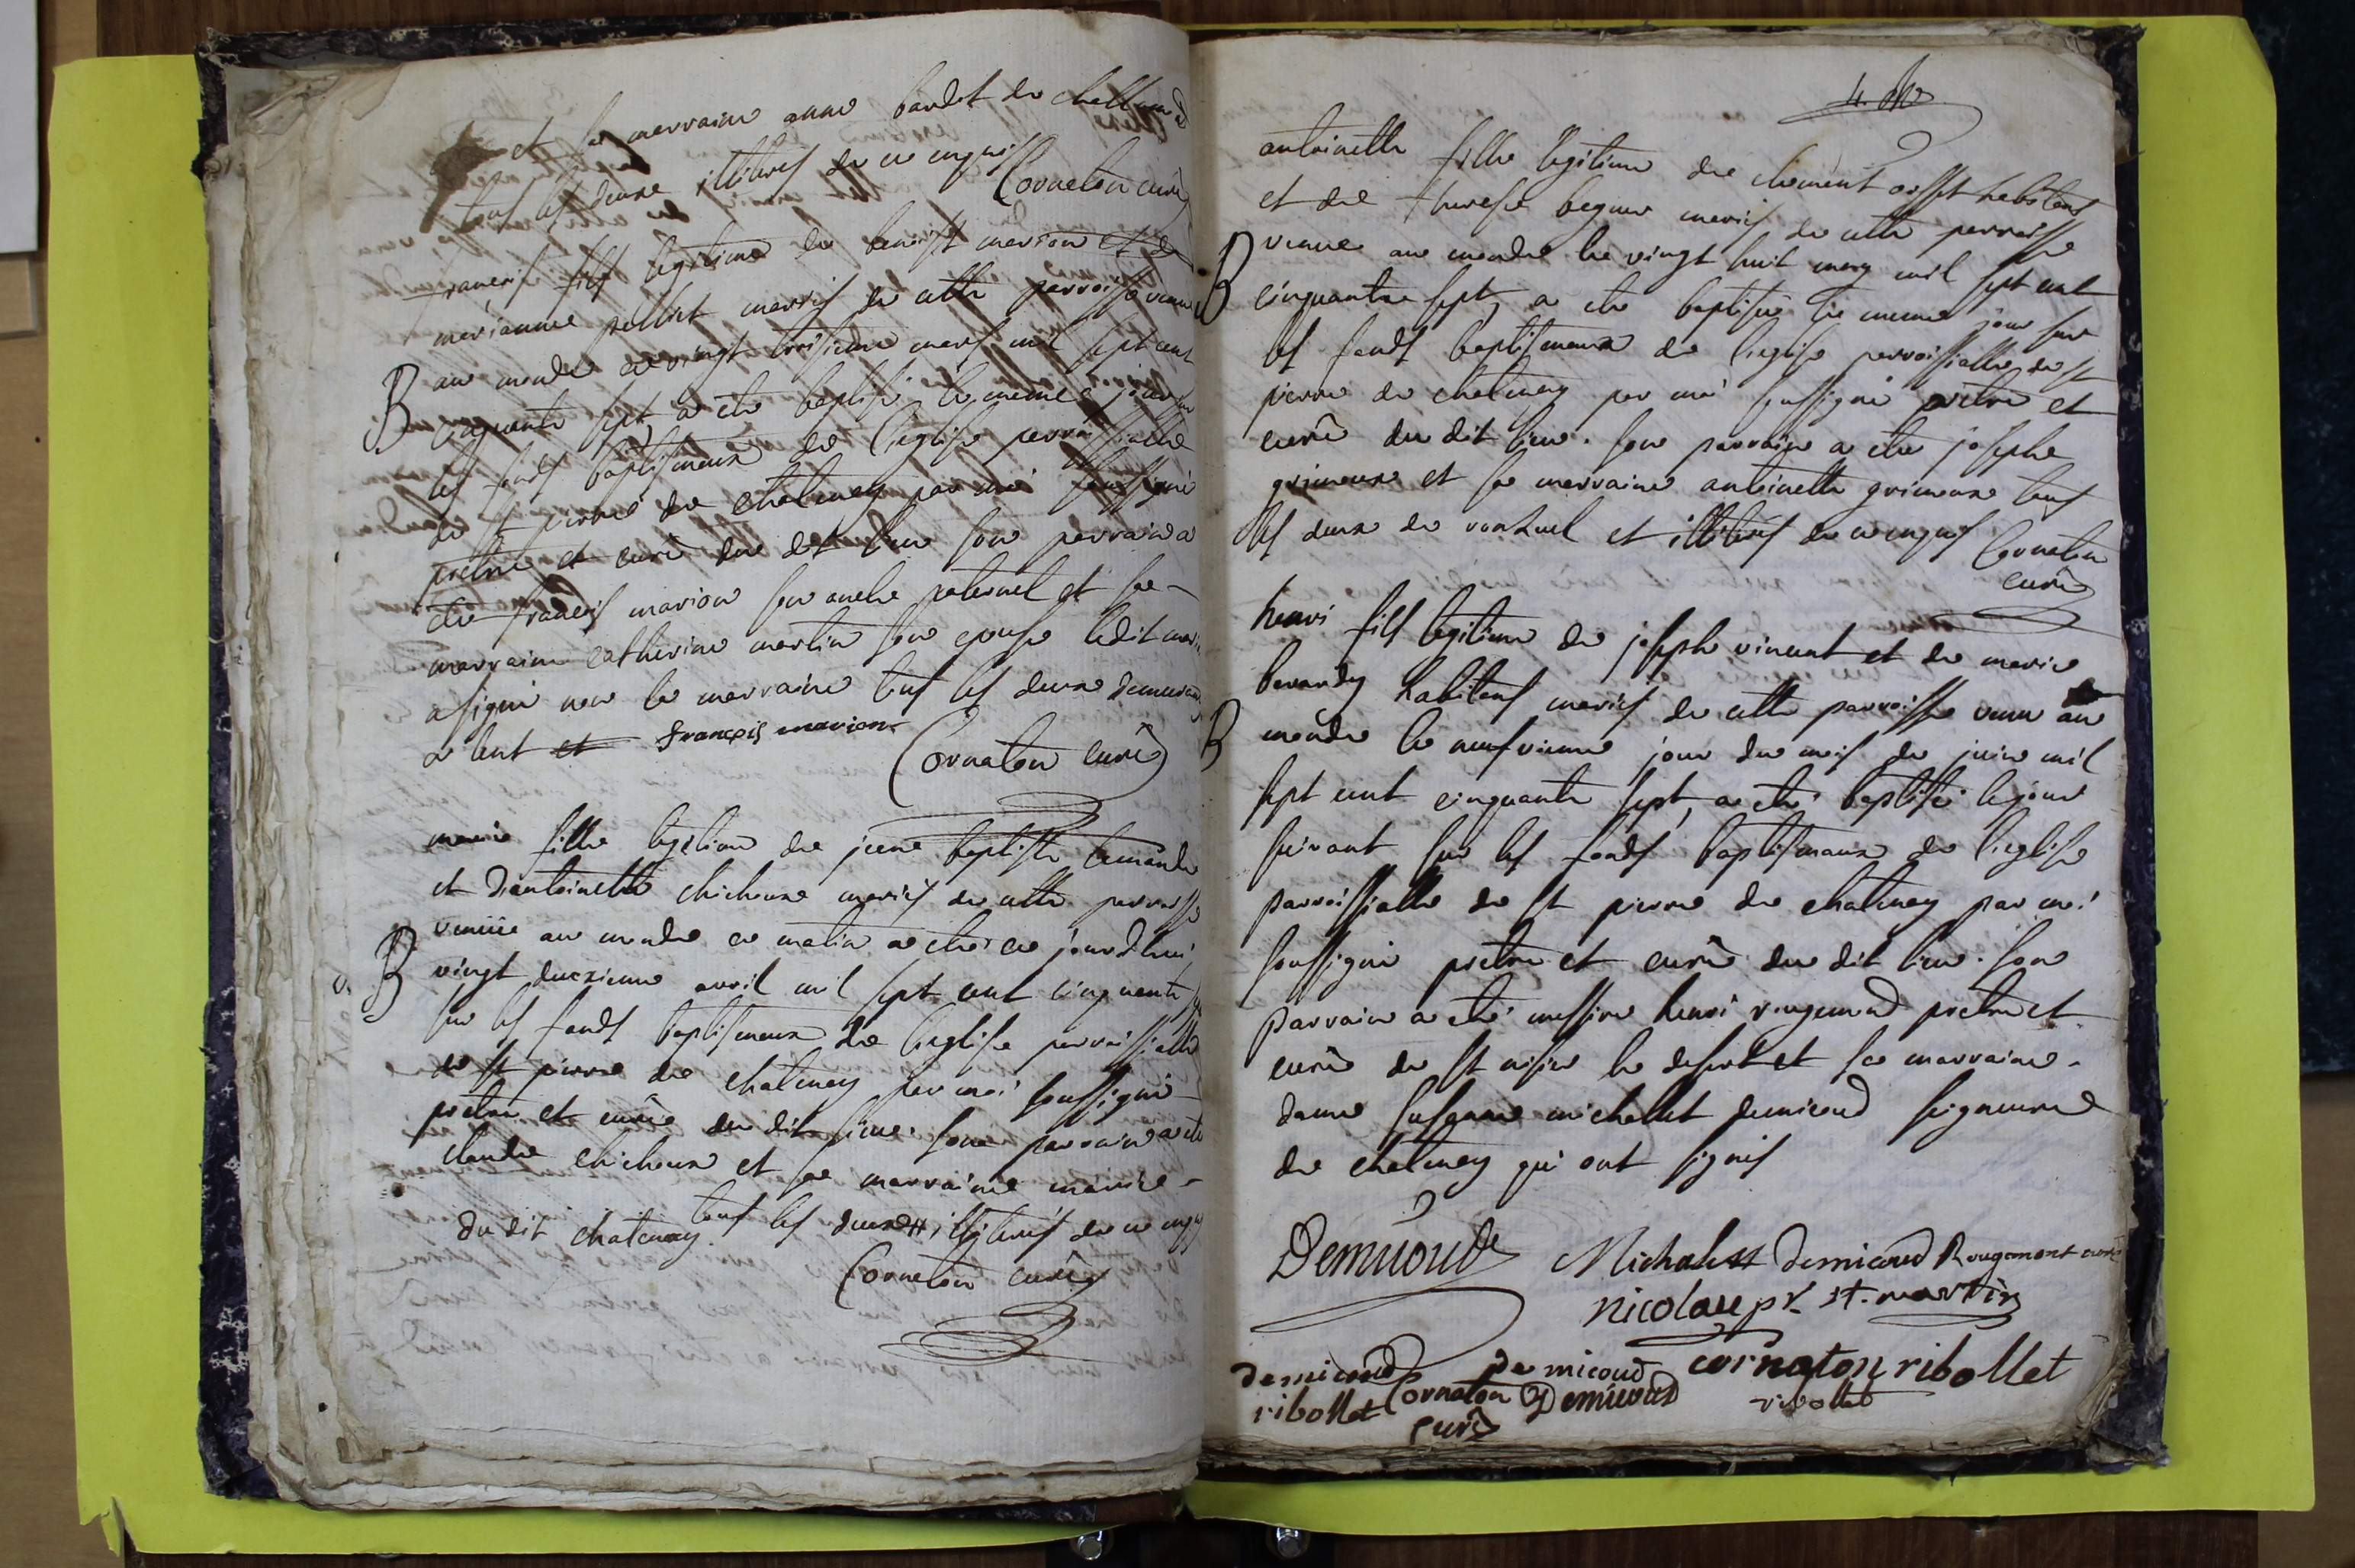 et sa marraine anne bandet de
touts les deuxe illiterés de ce enquis
Cornaton curê
francois fils legitime de benoist marion et de
marianne pollet mariés de cette parroisse venu
B au monde ce vingt troisieme mars mil sept cent
cinquante sept, a ete baptisé le meme jour sur
les fonds baptismaux de l'eglise parroissialle
de st pierre de chatenay par moi soussigné
pretre et curê du dit lieu son parrain a
ete francois marion son oncle paternel et sa
marraine catherine martin son epouse ledit marion
a signé non la marraine touts les deuxe demeurants
a lent et françois marion
Cornaton curê
marie fille legitime de jeane baptiste
et d'antoinette chicheuxe mariés de cette parroisse
venüe au monde ce matin a eté ce jourd'hui
B vingt deuxieme avril mil sept cent cinquante sept
sur les fonds baptismaux de l'eglise parroissialle
de st pierre de chatenay par moi soussigné
pretre et curê du dit lieu. son parrain a ete
claude chicheuxe et sa marraine marie
du dit chatenay touts les deuxe illiterés de ce enquis
Cornaton curê
antoinette fille legitime de clement habitants
et de therese mariés de cette parroisse
B venue au monde le vingt huit may mil sept cent
cinquante sept, a ete baptisée le meme jour sur
les fonds baptismaux de l'eglise parroissialle de st
pierre de chatenay par moi soussigné pretre et
curê du dit lieu. son parrain a ete josephe
grimeuxe et sa marraine antoinette grimeuxe touts
les deuxe de et illiterés de ce enquis Cornaton
curê
henri fils legitime de josephe vincent et de marie
berardy habitants mariés de cette parroisse venu au
B monde le neufvieme jour du mois de juin mil
sept cent cinquante sept, a eté baptisé le jour
suivant sur les fonds baptismaux de l'eglise
parroissialle de st pierre de chatenay par moi
soussigné pretre et curê du dit lieu. son
parrain a eté messire henri rougemond pretre et
curê de st nisier le desert et sa marraine
dame susanne michallet demicoud seigneure
de chatenay qui ont signés
Demicoud Michalet demicoud Rougemont curé
nicolas pr. st. martin
demicoud De micoud cornaton ribollet
ribollet Cornaton Demicoud ribollet
curê